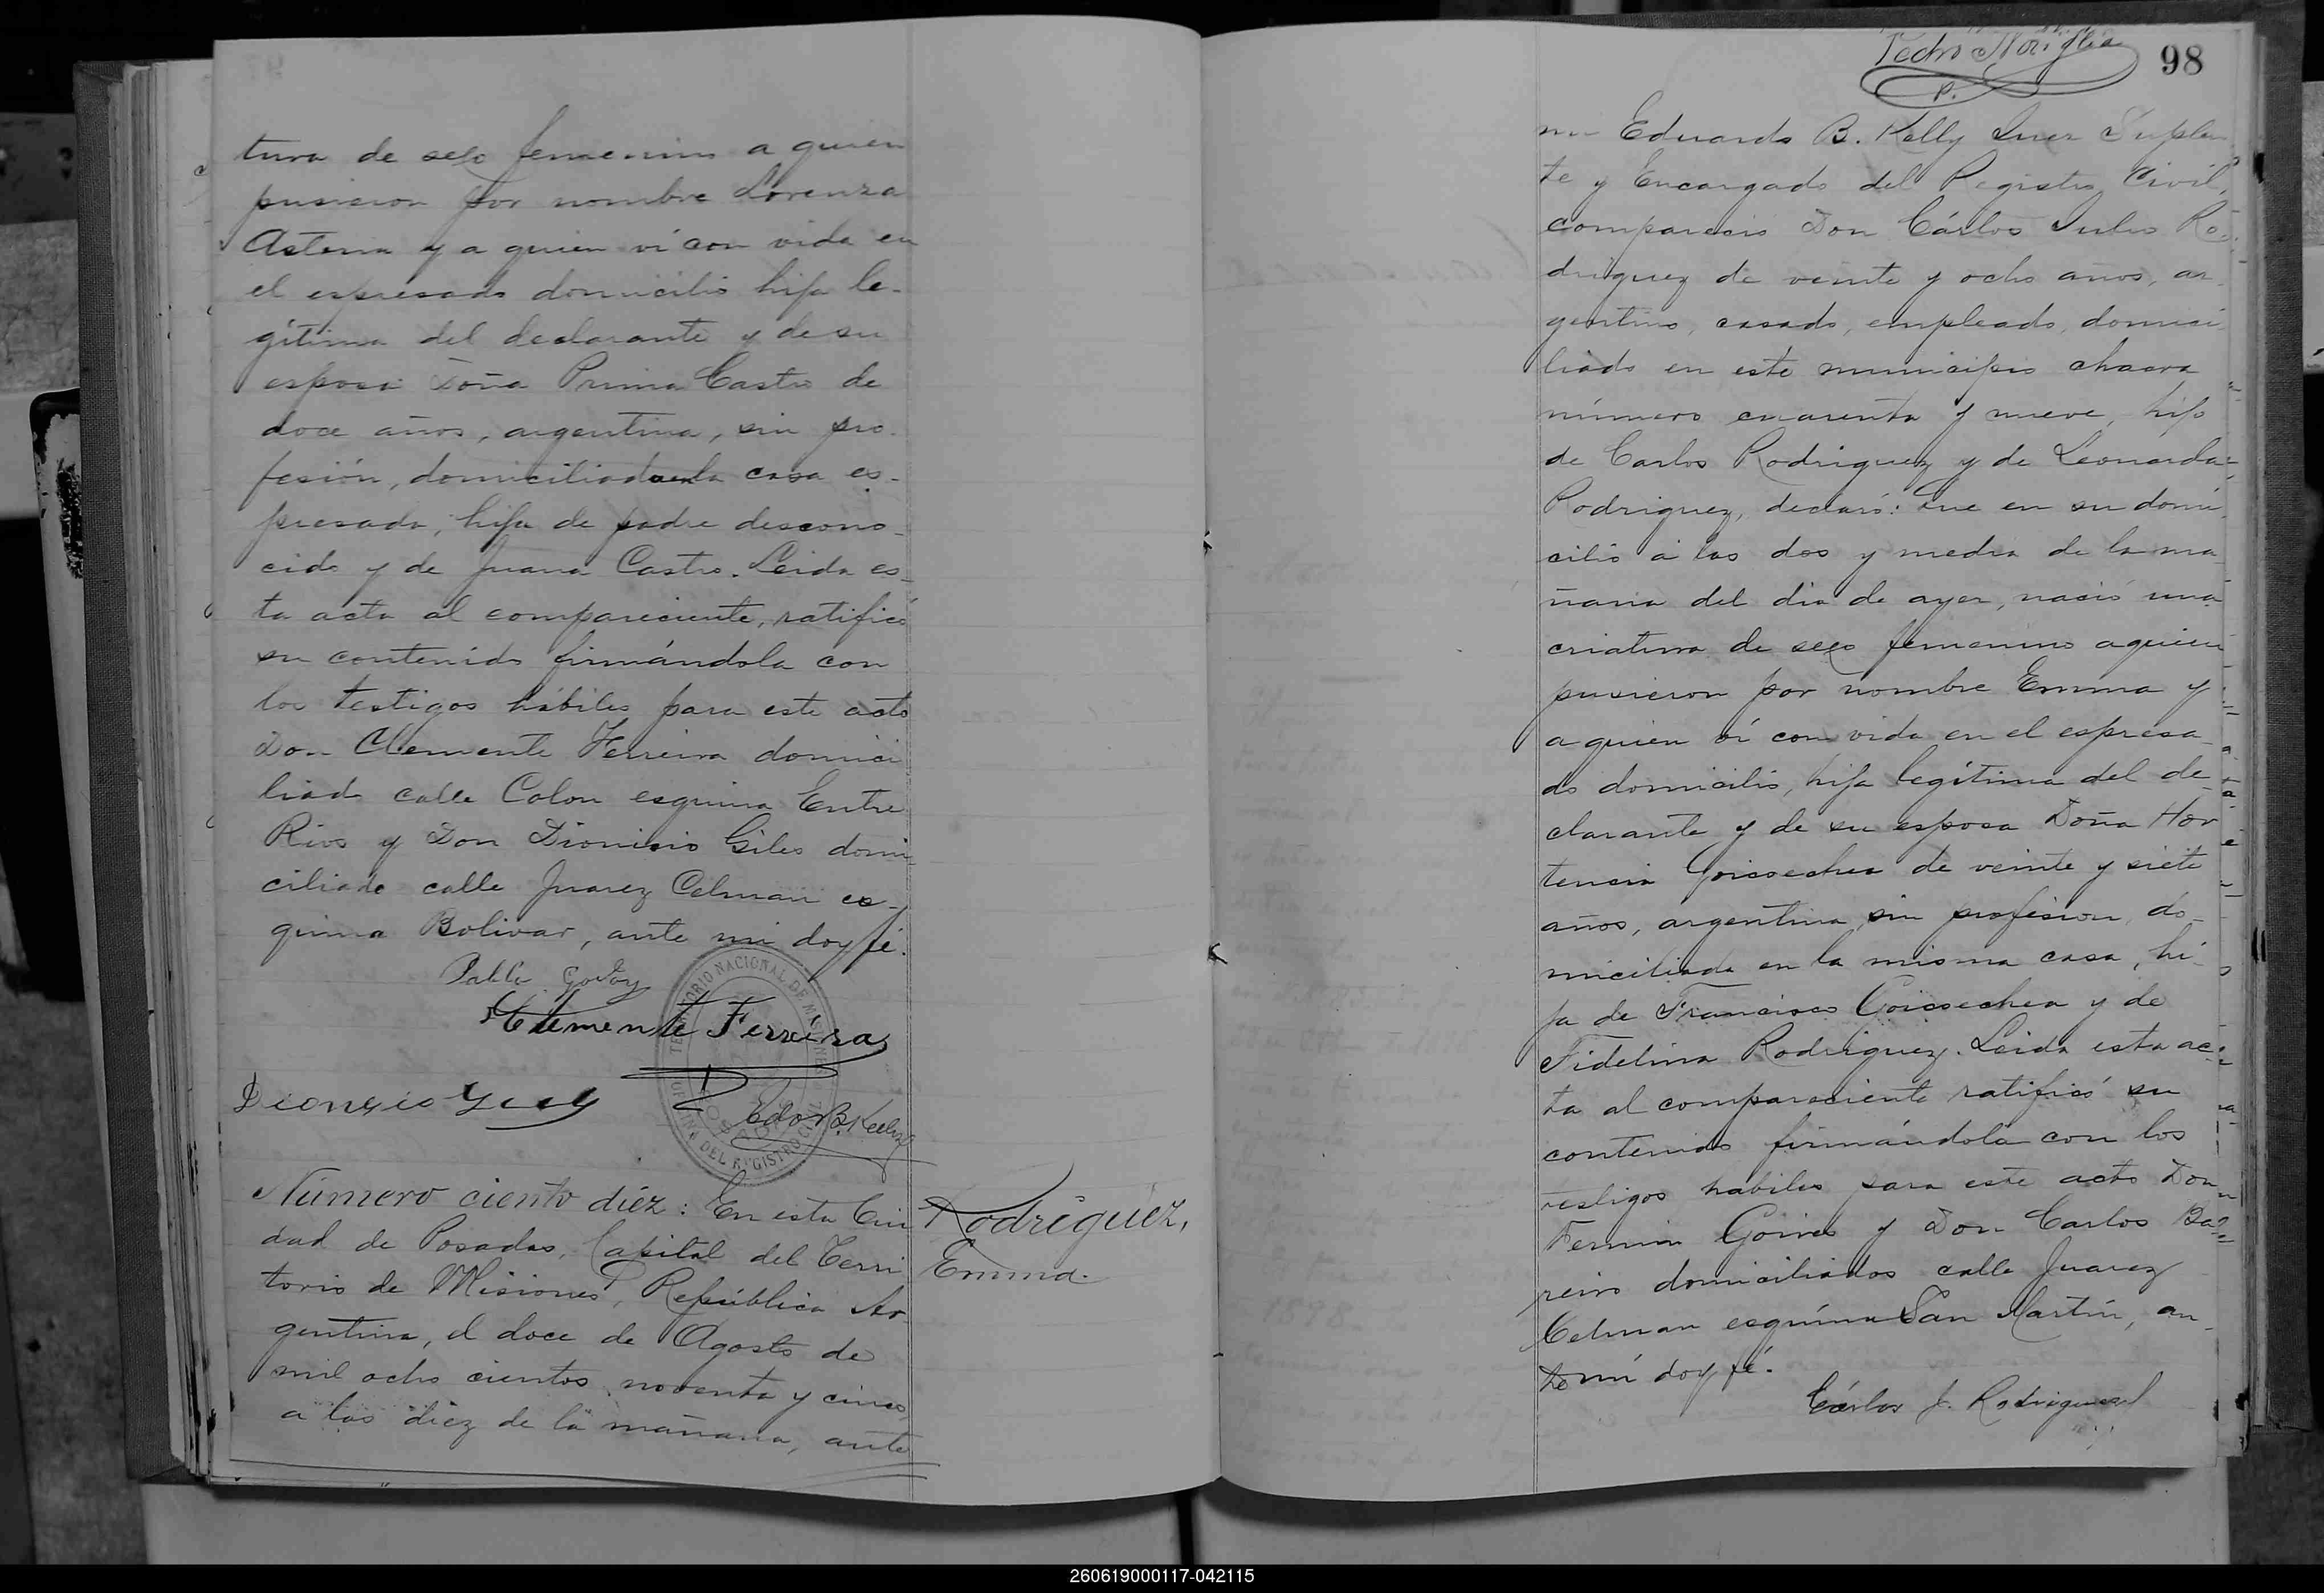 tura de sexo femenino a quien
pusieron por nombre Lorenza
Asteria y a quien ví con vida en
el espresado domicilio hija le-
gítima del declarante y de su
esposa Doña Prima Castro de
doce años, argentina, sin pro-
fesión, domiciliada en la casa es-
presada, hija de padre descono-
cido y de Juana Castro. Leida es-
ta acta al compareciente, ratificó
su contenido firmándola con
los testigos hábiles para este acto
Don Clemente Ferreira domici
liado calle Colon esquina Entre
Rios y Don Dionisio Giles domi-
ciliado calle Juarez Celman es-
quina Bolivar, ante mi doy fé.
Pablo Godoy
Clemente Ferreira
Edo B. Kelly
TERRITORIO NACIONAL DE MISIONES
OFICINA DEL REGISTRO CIVIL
Número ciento diéz: En esta Ciu
dad de Posadas, Capital del Terri
torio de Misiones, República Ar
gentina, el doce de Agosto de
mil ocho cientos noventa y cinco,
a las diez de la mañana, ante
Rodriguez,
Emma.
98
mi Eduardo B. Kelly Juez Suplen
te y Encargado del Registro Civil,
compareció Don Cárlos Julio Ro
driguez de veinte y ocho años, ar
gentino, casado, empleado, domici
liado en este municipio chacra
número cuarenta y nueve, hijo
de Carlos Rodriguez y de Leonarda
Rodriguez, declaró: Que en su domi
cilio á las dos y media de la ma
ñana del dia de ayer, nació una
criatura de sexo femenino a quien
pusieron por nombre Emma y
a quien ví con vida en el espresa
do domicilio, hija legítima del de
clarante y de su esposa Doña Hor
tencia Goicochea de veinte y siete
años, argentina, sin profesion, do-
miciliada en la misma casa, hi-
ja de Francisco Goicochea y de
Fidelina Rodriguez. Leida esta ac-
ta al compareciente ratificó su
contenido firmándola con los
testigos habiles para este acto Don
Fermin Goires y Don Carlos Ba
reiro domiciliados calle Juarez
Celman esquina San Martin, an-
te mí doy fé.
Cárlos J. Rodriguez
260619000117-042115